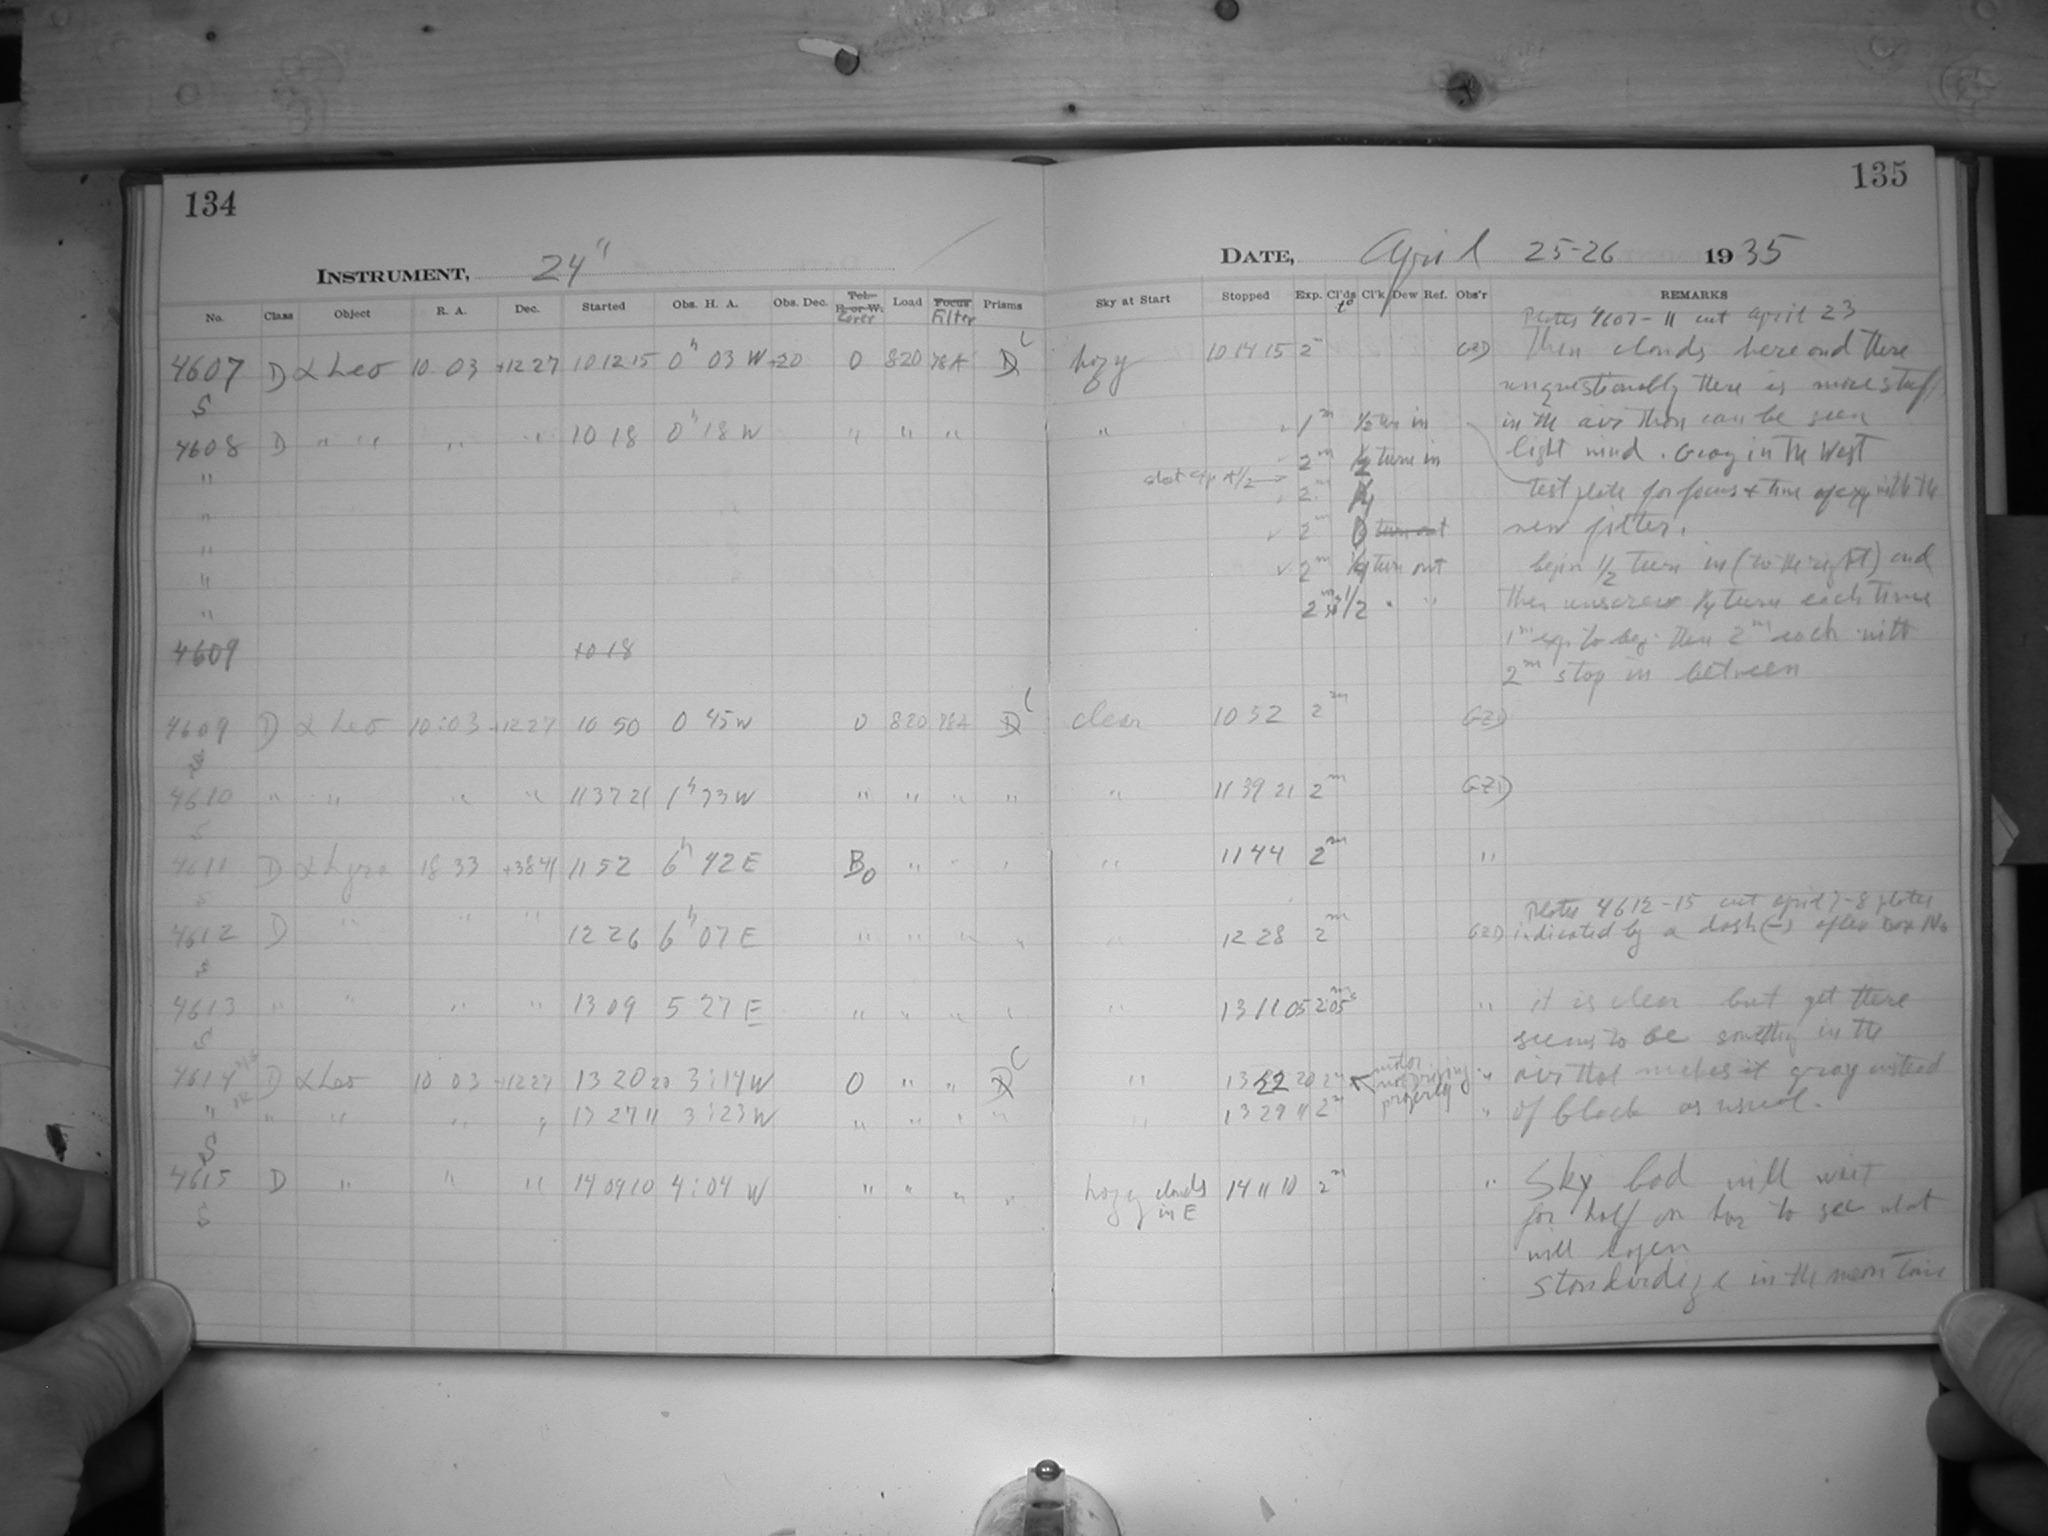 134
INSTRUMENT, 24"
No. Class Object R. A. Dec. Started Obs. H. A. Obs. Dec. Tel. E. or W. Cover Load Focus Filter Prisms
4607 D α Leo 10 03 +12 27 10 12 15 0h 03 W +20 0 820 78A D C
S
4608 D " " " " 10 18 0h 18 W " " "
"
"
"
"
"
4609 10 18
4609 D α Leo 10:03 +12 27 10 50 0 45 W 0 820 78A D C
S
4610 " " " " 11 37 21 1h 33 W " " " "
S
4611 D α Lyra 18 33 +38 41 11 52 6h 42 E B0 " " "
S
4612 D " " " 12 26 6h 07 E " " " "
S
4613 " " " " 13 09 5 27 E " " " "
S
4614 D α Leo 10 03 +12 27 13 20 20 3:14 W 0 " " D C
" " " " " 13 27 11 3:23 W " " " "
S
4615 D " " " 14 09 10 4:04 W " " " "
S
135
DATE, April 25-26 1935
Sky at Start Stopped Exp. Cl'ds to Cl'k Dew Ref. Obs'r REMARKS
Plates 4607-11 cut april 23
hazy 10 14 15 2m GZD then clouds here and there
unquestionably there is more stuff
" 1m 1/2 turn in in the air than can be seen
2m 1/4 turn in light wind. Gray in the West
2m test plate for focus + time of exp with the
2m 0 turn out new filter.
2m 1/4 turn out begin 1/2 turn in (to the right) and
2m 1/2 " " then unscrew 1/4 turn each time
1m exp to beg. then 2m each with
2m stop in between
clear 10 52 2m GZD
" 11 39 21 2m GZD
" 11 44 2m "
Plates 4612-15 cut april 7-8 plates
" 12 28 2m GZD indicated by a dash (-) after box No
" 13 11 05 2m 05s " it is clear but yet there
seems to be something in the
" 13 22 20 2m motor not driving properly " air that makes it gray instead
" 13 29 11 2m " of black as usual.
hazy clouds in E 14 11 10 2m " Sky bad will wait
for half an hour to see what
will happen
Standardize in the mean time